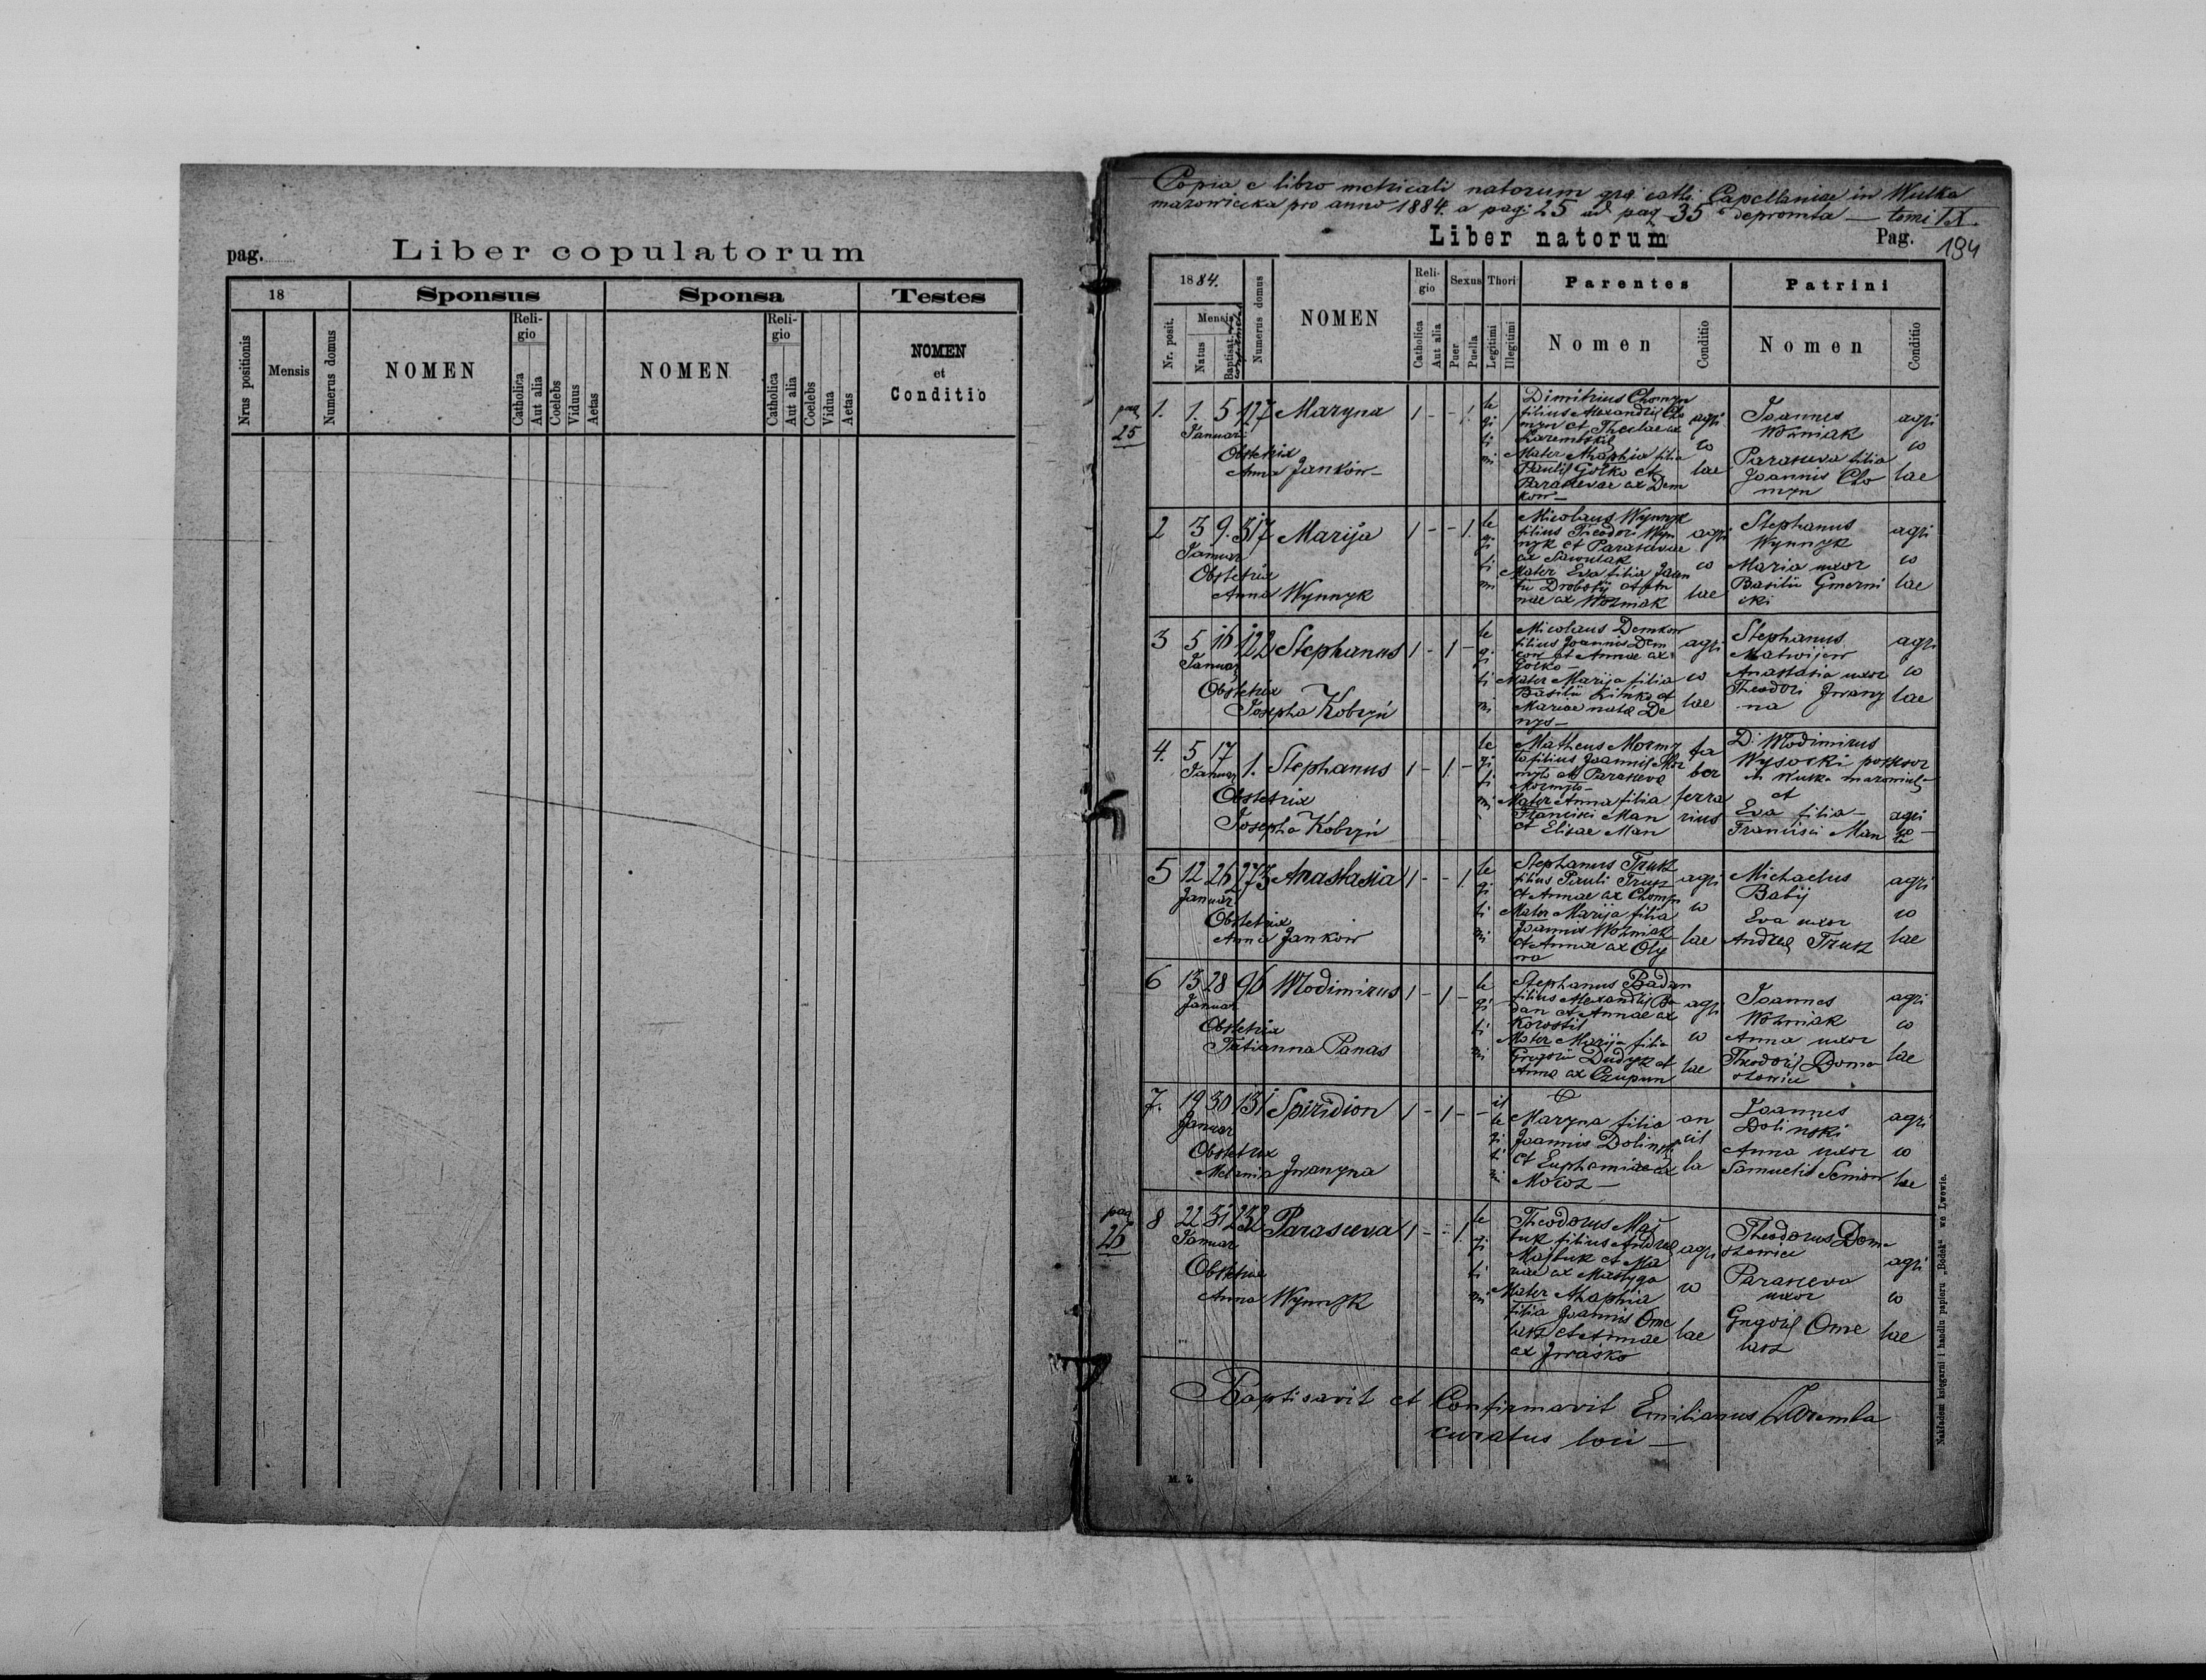 pag.
Liber copulatorum
18
Sponsus
Sponsa
Testes
Nrus positionis
Mensis
Numerus domus
NOMEN
Reli-
gio
Catholica
Aut alia
Coelebs
Viduus
Aetas
NOMEN
Reli-
gio
Catholica
Aut alia
Coelebs
Vidua
Aetas
NOMEN
et
Conditio
Copia e libro metricali natorum gr. cath. Capellaniae in Wulka
mazowiecka pro anno 1884. a pag. 25 ad pag 35 depromta — tomi IX.
Liber natorum
Pag.
194
1884.
Nr. posit.
Mensis
Natus
Baptisat.
Numerus domus
NOMEN
Reli-
gio
Catholica
Aut alia
Sexus
Puer
Puella
Thori
Legitimi
Illegitimi
Parentes
Nomen
Conditio
Patrini
Nomen
Conditio
pag
25
1. 1. 5 127 Maryna 1 - - 1.
Januar
Obstetrix
Anna Janków —
le
gi
ti
mi
Dimitrius Chomyn
filius Alexandri Cho
myn et Theclae ex
Zarembski
Mater Ahaphia filia
Pauli Gołko et
Parascevae ex Dem
kow —
agri
co
lae
Joannes
Woźniak
Parasceva filia
Joannis Cho
myn
agri
co
lae
2 3 9. 317 Marija 1 - - 1.
Januar
Obstetrix
Anna Wynnyk
le
gi
ti
mi
Nicolaus Wynnyk
filius Theodori Wyn
nyk et Parascevae
ex Sawulak
Mater Eva filia
Drobotij et An
nae ex Woźniak
agri
co
lae
Stephanus
Wynnyk
Maria uxor
Basilii Gmerni
cki
agri
co
lae
3 5 16 122 Stephanus 1 - 1 -
Januar
Obstetrix
Josepha Kobryń
le
gi
ti
mi
Nicolaus Demkow
filius Joannis Dem
cow et Annae ex
Gołko —
Mater Marija filia
Basilii Kitńka et
Mariae nata De
nys —
agri
co
lae
Stephanus
Matwijew
Anastasia uxor
Theodori Iwany
na
agri
co
lae
4. 5 17 1. Stephanus 1 - 1. -
Januar
Obstetrix
Josepha Kobryń
le
gi
ti
mi
Matheus Mormy
ło filius Joannis Mor
myło et Parasceva
Mormyło —
Mater Anna filia
Francisci Man
et Elisae Man
fa
ber
ferra
rius
D. Włodimirus
Wysocki possesor
in Wulka mazowiecka
et
Eva filia —
Francisci Man
agri
co
la
5 12 26 273 Anastasia 1 - - 1.
Januar
Obstetrix
Anna Jankow
le
gi
ti
mi
Stephanus Trusz
filius Pauli Trusz
et Annae ex Chomyn
Mater Marija filia
Joannis Woźniak
et Annae ex Oly
wa
agri
co
lae
Michaelus
Babij
Eva uxor
Andreę Trusz
agri
co
lae
6 13 28 96 Włodimirus 1 - 1 -
Januar
Obstetrix
Tatianna Panas
le
gi
ti
mi
Stephanus Badan
filius Alexandri Ba
dan et Annae ex
Korostil
Mater Marija filia
Gregorii Dudyk et
Anna ex Czupun
agri
co
lae
Joannes
Woźniak
Anna uxor
Theodori Doma
szowicz
agri
co
lae
7. 19 30 131 Spiridion 1 - 1 - -
Januar
Obstetrix
Melania Iwanyna
il
le
gi
ti
mi
Maryna filia
Joannis Dolinski
et Euphemiae ex
Moroz —
an
cil
la
Joannes
Dolinski
Anna uxor
Samuelis Semiow
agri
co
lae
pag
26
8 22 31 232 Parasceva 1 - - 1.
Januar
Obstetrix
Anna Wynnyk
le
gi
ti
mi
Theodorus Maj
tuk filius Andreę
Majtuk et Ma
riae ex Mastyga
Mater Ahaphia
filia Joannis Ome
lasz et Annae
ex Iwaśko
agri
co
lae
Theodorus Dom
szowicz
Parasceva
uxor
Gregorij Ome
lasz
agri
co
lae
Baptisavit et Confirmavit Emilianus Zaremba
curatus loci —
M. Z.
Nakładem księgarni i handlu papieru „Bodek" we Lwowie.